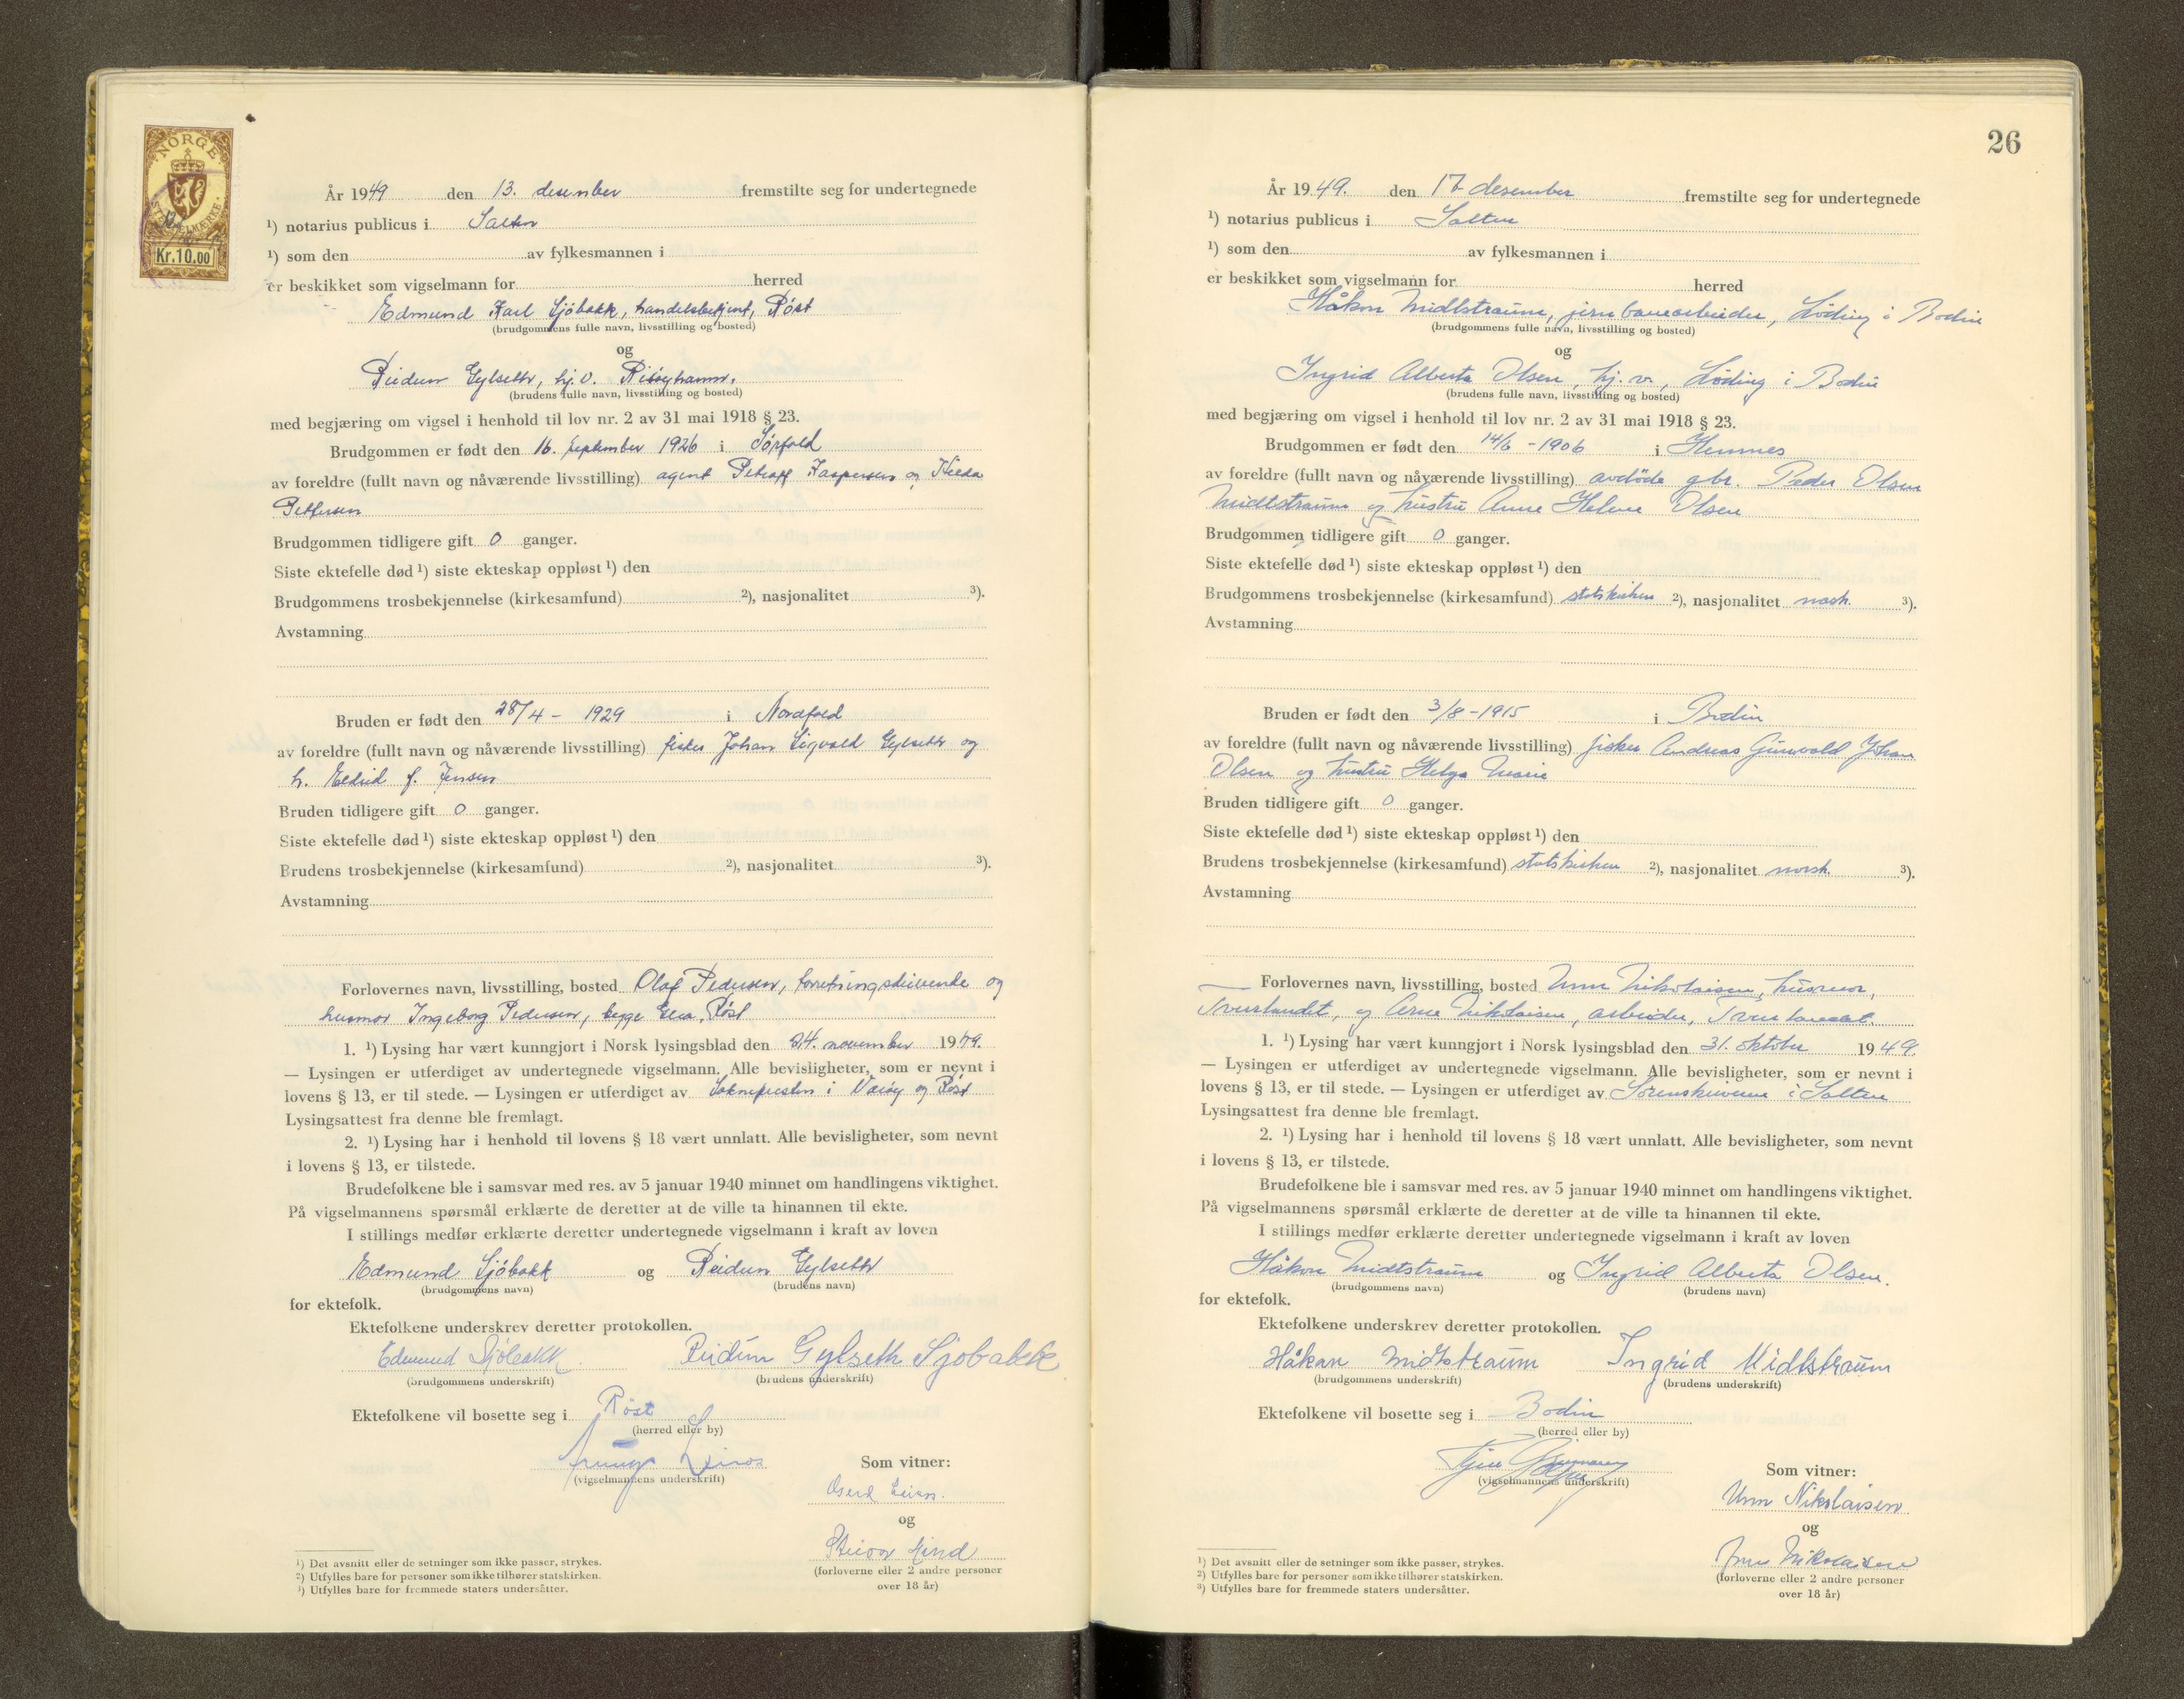 NORGE
STEMPELMERKE
Kr.10.00
År 1949 den 13. desember fremstilte seg for undertegnede
¹) notarius publicus i Salten
¹) som den av fylkesmannen i
er beskikket som vigselmann for herred
Edmund Karl Sjöbakk, handelsbetjent, Röst
(brudgommens fulle navn, livsstilling og bosted)
og
Reidun Gylseth, hj.v. Risöyhamn.
(brudens fulle navn, livsstilling og bosted)
med begjæring om vigsel i henhold til lov nr. 2 av 31 mai 1918 § 23.
Brudgommen er født den 16. september 1926 i Sörfold
av foreldre (fullt navn og nåværende livsstilling) agent Kaspersen og
Pettersen
Brudgommen tidligere gift 0 ganger.
Siste ektefelle død ¹) siste ekteskap oppløst ¹) den
Brudgommens trosbekjennelse (kirkesamfund) ²), nasjonalitet ³).
Avstamning
Bruden er født den 28/4 - 1929 i Nordfold
av foreldre (fullt navn og nåværende livsstilling) fisker Johan Sigvald Gylseth og
h. Eldrid f. Jensen
Bruden tidligere gift 0 ganger.
Siste ektefelle død ¹) siste ekteskap oppløst ¹) den
Brudens trosbekjennelse (kirkesamfund) ²), nasjonalitet ³).
Avstamning
Forlovernes navn, livsstilling, bosted Olaf Pedersen, forretningsdrivende og
husmor Ingeborg Pedersen, begge Röst
1. ¹) Lysing har vært kunngjort i Norsk lysingsblad den 24. november 1949.
— Lysingen er utferdiget av undertegnede vigselmann. Alle bevisligheter, som er nevnt i
lovens § 13, er til stede. — Lysingen er utferdiget av Soknepresten i Væröy og Röst
Lysingsattest fra denne ble fremlagt.
2. ¹) Lysing har i henhold til lovens § 18 vært unnlatt. Alle bevisligheter, som nevnt
i lovens § 13, er tilstede.
Brudefolkene ble i samsvar med res. av 5 januar 1940 minnet om handlingens viktighet.
På vigselmannens spørsmål erklærte de deretter at de ville ta hinannen til ekte.
I stillings medfør erklærte deretter undertegnede vigselmann i kraft av loven
Edmund Sjöbakk og Reidun Gylseth
(brudgommens navn) (brudens navn)
for ektefolk.
Ektefolkene underskrev deretter protokollen.
Edmund Sjöbakk. Reidun Gylseth Sjöbakk
(brudgommens underskrift) (brudens underskrift)
Ektefolkene vil bosette seg i Röst
(herred eller by)
(vigselmannens underskrift)
Som vitner:
og
Lind
(forloverne eller 2 andre personer
over 18 år)
¹) Det avsnitt eller de setninger som ikke passer, strykes.
²) Utfylles bare for personer som ikke tilhører statskirken.
³) Utfylles bare for fremmede staters undersåtter.
26
År 1949. den 17 desember fremstilte seg for undertegnede
¹) notarius publicus i Salten
¹) som den av fylkesmannen i
er beskikket som vigselmann for herred
Håkon Midtstraum, jernbanearbeider, Löding i Bodin
(brudgommens fulle navn, livsstilling og bosted)
og
Ingrid Alberta Olsen, hj.v., Löding i Bodin
(brudens fulle navn, livsstilling og bosted)
med begjæring om vigsel i henhold til lov nr. 2 av 31 mai 1918 § 23.
Brudgommen er født den 14/6 - 1906 i Hemnes
av foreldre (fullt navn og nåværende livsstilling) avdöde gbr. Peder Olsen
Midtstraum og hustru Anne Helene Olsen
Brudgommen tidligere gift 0 ganger.
Siste ektefelle død ¹) siste ekteskap oppløst ¹) den
Brudgommens trosbekjennelse (kirkesamfund) statskirken ²), nasjonalitet norsk. ³).
Avstamning
Bruden er født den 3/8 - 1915 i Bodin
av foreldre (fullt navn og nåværende livsstilling) fisker Andreas Gunvald Johan
Olsen og hustru Helga Marie
Bruden tidligere gift 0 ganger.
Siste ektefelle død ¹) siste ekteskap oppløst ¹) den
Brudens trosbekjennelse (kirkesamfund) statskirken ²), nasjonalitet norsk. ³).
Avstamning
Forlovernes navn, livsstilling, bosted Unn Nikolaisen, husmor,
Tverlandet, og Arne Nikolaisen, arbeider, Tverlandet.
1. ¹) Lysing har vært kunngjort i Norsk lysingsblad den 31. oktober 1949.
— Lysingen er utferdiget av undertegnede vigselmann. Alle bevisligheter, som er nevnt i
lovens § 13, er til stede. — Lysingen er utferdiget av Sorenskriveren i Salten
Lysingsattest fra denne ble fremlagt.
2. ¹) Lysing har i henhold til lovens § 18 vært unnlatt. Alle bevisligheter, som nevnt
i lovens § 13, er tilstede.
Brudefolkene ble i samsvar med res. av 5 januar 1940 minnet om handlingens viktighet.
På vigselmannens spørsmål erklærte de deretter at de ville ta hinannen til ekte.
I stillings medfør erklærte deretter undertegnede vigselmann i kraft av loven
Håkon Midtstraum og Ingrid Alberta Olsen.
(brudgommens navn) (brudens navn)
for ektefolk.
Ektefolkene underskrev deretter protokollen.
Håkon Midtstraum Ingrid Midtstraum
(brudgommens underskrift) (brudens underskrift)
Ektefolkene vil bosette seg i Bodin
(herred eller by)
(vigselmannens underskrift)
Som vitner:
Unn Nikolaisen
og
Arne Nikolaisen
(forloverne eller 2 andre personer
over 18 år)
¹) Det avsnitt eller de setninger som ikke passer, strykes.
²) Utfylles bare for personer som ikke tilhører statskirken.
³) Utfylles bare for fremmede staters undersåtter.